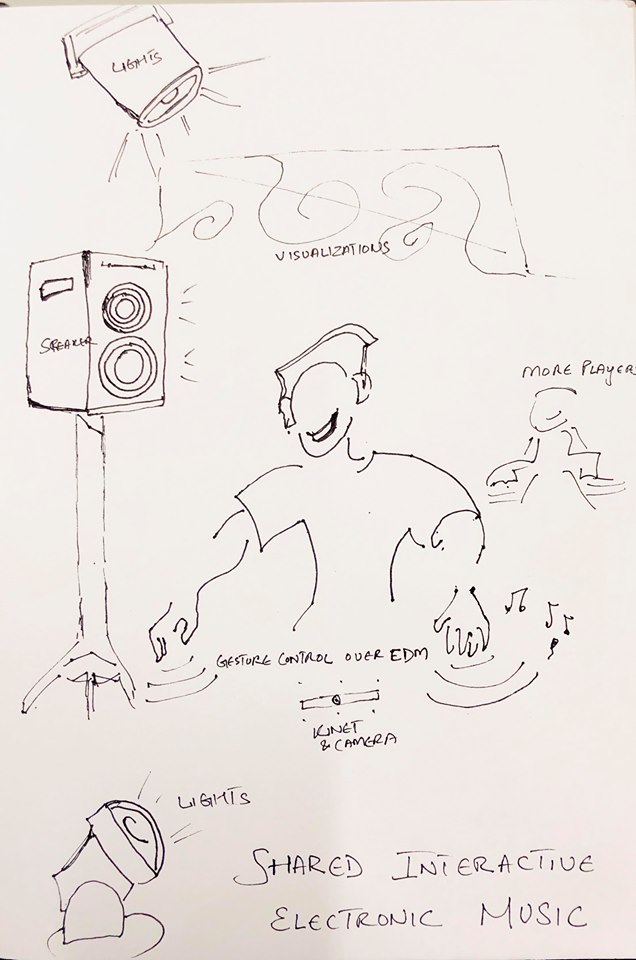 LIGHTS
VISUALIZATIONS
SPEAKER
MORE PLAYERS
GESTURE CONTROL OVER EDM
KINET
& CAMERA
LIGHTS
SHARED INTERACTIVE
ELECTRONIC MUSIC